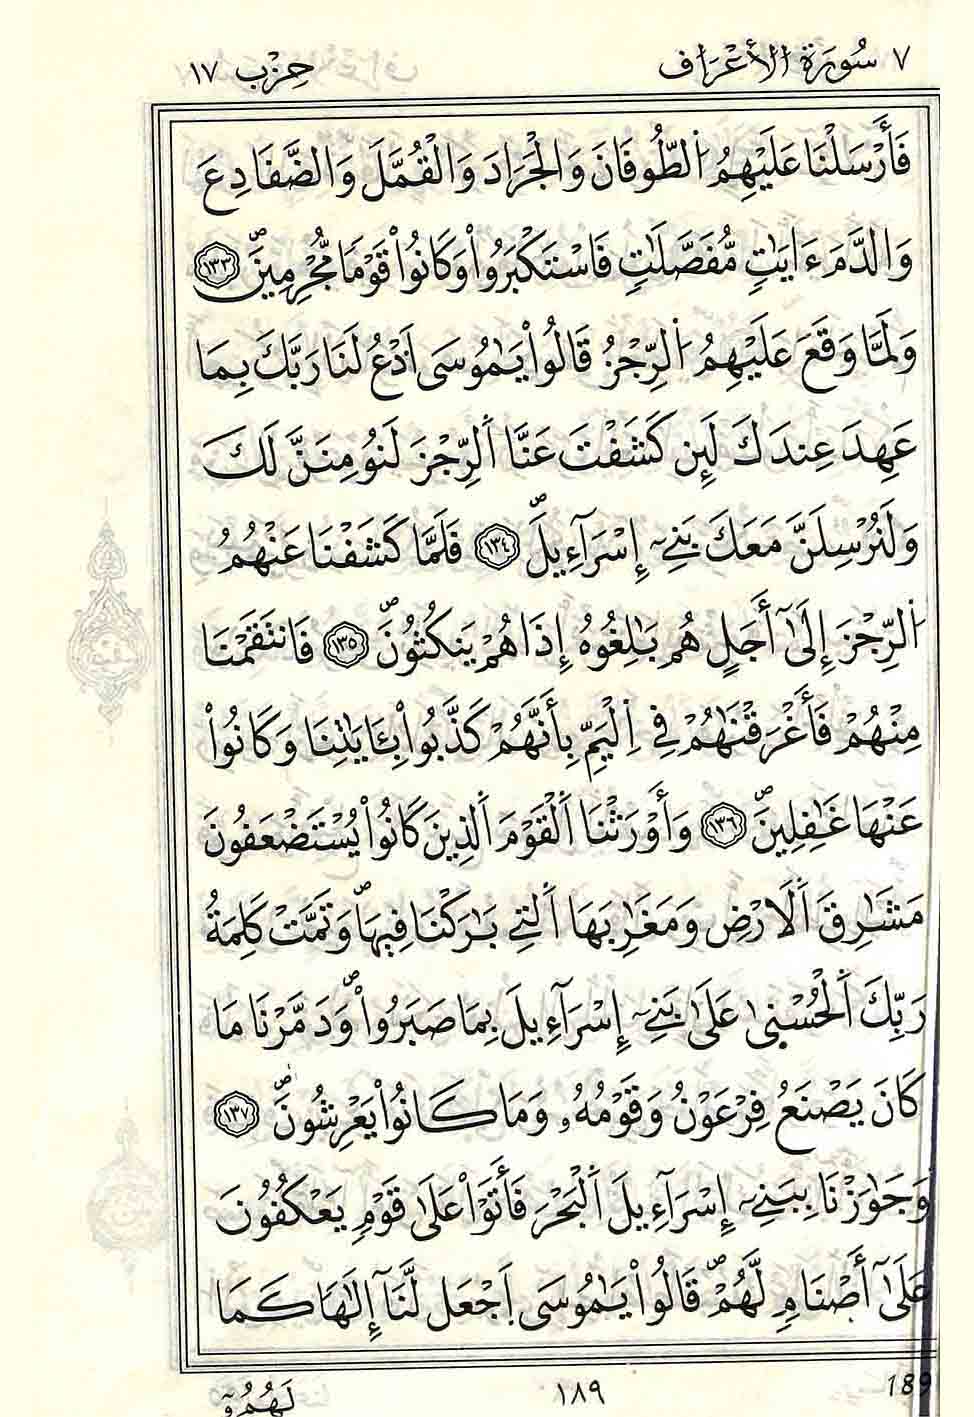 ٧ سُورَةُ الأَعْرَافِ حِزْب ١٧
فَأَرْسَلْنَا عَلَيْهِمُ اُلطُّوفَانَ وَالْجَرَادَ وَالْقُمَّلَ وَالضَّفَادِعَ
وَالدَّمَ ءَايَٰتٖ مُّفَصَّلَٰتٖ فَاسْتَكْبَرُواْ وَكَانُواْ قَوْماٗ مُّجْرِمِينَۖ ١٣٣
وَلَمَّا وَقَعَ عَلَيْهِمُ اُلرِّجْزُ قَالُواْ يَٰمُوسَى اَدْعُ لَنَا رَبَّكَ بِمَا
عَهِدَ عِندَكَ لَئِن كَشَفْتَ عَنَّا اَلرِّجْزَ لَنُومِنَنَّ لَكَ
وَلَنُرْسِلَنَّ مَعَكَ بَنِےٓ إِسْرَآءِيلَۖ ١٣٤ فَلَمَّا كَشَفْنَا عَنْهُمُ
اُلرِّجْزَ إِلَىٰٓ أَجَلٍ هُم بَٰلِغُوهُ إِذَا هُمْ يَنكُثُونَۖ ١٣٥ فَانتَقَمْنَا
مِنْهُمْ فَأَغْرَقْنَٰهُمْ فِے اِلْيَمِّ بِأَنَّهُمْ كَذَّبُواْ بِـَٔايَٰتِنَا وَكَانُواْ
عَنْهَا غَٰفِلِينَۖ ١٣٦ وَأَوْرَثْنَا اَلْقَوْمَ اَلذِينَ كَانُواْ يُسْتَضْعَفُونَ
مَشَٰرِقَ اَلَارْضِ وَمَغَٰرِبَهَا اَلتِے بَٰرَكْنَا فِيهَاۖ وَتَمَّتْ كَلِمَةُ
رَبِّكَ اَلْحُسْنىٰ عَلَىٰ بَنِےٓ إِسْرَآءِيلَ بِمَا صَبَرُواْۖ وَدَمَّرْنَا مَا
كَانَ يَصْنَعُ فِرْعَوْنُ وَقَوْمُهُۥ وَمَا كَانُواْ يَعْرِشُونَۖ ١٣٧
وَجَٰوَزْنَا بِبَنِےٓ إِسْرَآءِيلَ اَلْبَحْرَ فَأَتَوْاْ عَلَىٰ قَوْمٖ يَعْكُفُونَ
عَلَىٰٓ أَصْنَامٖ لَّهُمْۖ قَالُواْ يَٰمُوسَى اَجْعَل لَّنَآ إِلَٰهاٗ كَمَا
لَهُمُۥٓ
١٨٩
189